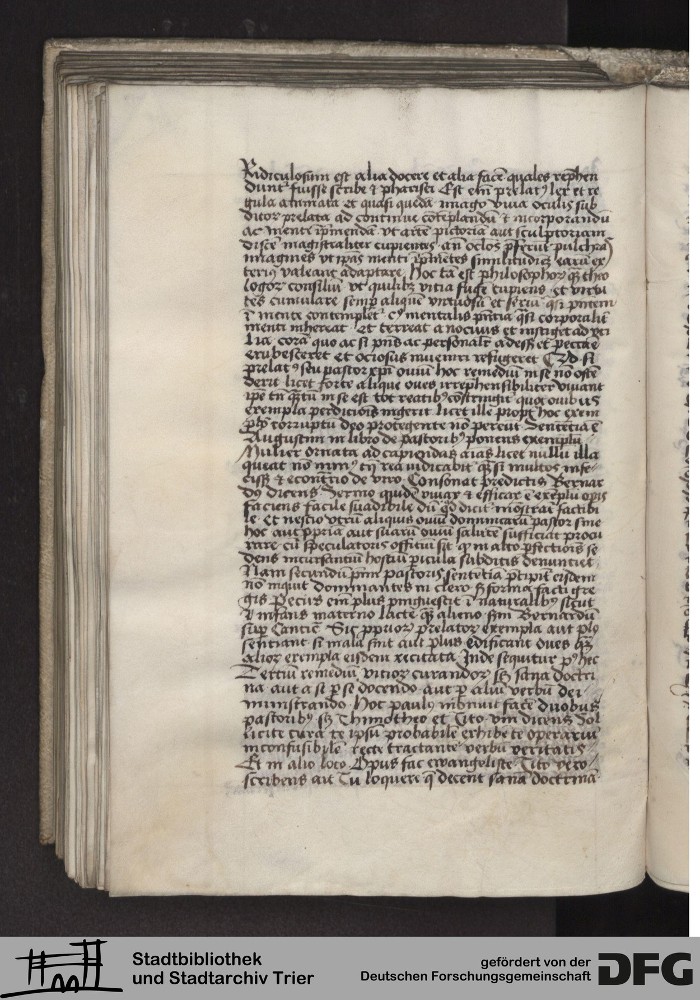 Ridiculosum est alia docere et alia facere quales rephen
dunt fuisse scribe et pharisei Est enim prelatus lex et re
gula animata et quasi queda imago viua oculis sub
ditorum prelata ad continue contemplandum et incorporandum
ac menti imprimendam ut artem pictoriam aut sculptoriam
discere magistraliter cupientes an oculos preferunt pulchras
imagines ut ipas menti imprimentes similitudines earum ex
terius valeant adaptare Hoc tam est philosophorum quam theo
logorum consilium ut quilibet vitia fugere cupiens et virtu
tes cumulare semper aliquem virtuosum et serium quasi presentem
in mente contempletur cuius mentalis presentia quasi corporaliter
menti inhereat et terreat a nociuis et instiget ad uti
lia coram quo ac si presens ac personaliter adesset et peccare
erubesceret et ociosus inueniri refugeret Quod si
prelatus seu pastor xpi ouium hoc remedium in se non osten
derit licet forte alique oues irreprehensibiliter viuant
ipe tamen quantum in se est tot reatibus constringit quot ouibus
exempla perdicionis ingerit licet ille propter hoc exem
plum corruptum deo protegente non pereunt Sententia est
Augustini in libro de pastoribus ponens exemplum
Mulier ornata ad capiendas aias licet nullum illa
queat non minus tamen rea iudicabitur quam si multos infe
cisset et econtrario de viro Consonat predictis Bernar
dus dicens Sermo quidem viuax et efficax est exemplum operis
faciens facile suadibile dum quod dicit mostrat factibi
le Et nescio utrum aliquis ouium dominicarum pastor sine
hoc aut propria aut suarum ouium salute sufficiat procu
rare cum speculatoris officium sit quod in alto perfectionis se
dens incursantium hostium pericula subditis denunciet
Nam secundum primi pastoris sententia precipitur eisdem
non inquit dominantes in clero sed forma facti gre
gis Pecus enim plus pinguescit in naturalibus sicut
et infans materno lacte quam alieno secundum Bernardum
super Cantica Sic propriorum prelatorum exempla aut plus
sentiant si mala sint aut plus edificant oues quam
aliorum exempla eisdem recitata Inde sequitur post hec
Tertium remedium vitiorum curandorum scilicet sana doctri
na aut a se per se docendo aut per alium verbum dei
ministrando Hoc paulus iniunxit facere duobus
pastoribus scilicet Thimotheo et Tito vni dicens Sol
licite cura te ipsum probabilem exhibere operarium
inconfusibilem recte tractantem verbum veritatis
Et in alio loco Opus fac ewangeliste Tito vero
scribens ait Tu loquere que decent sanam doctrinam
Stadtbibliothek
und Stadtarchiv Trier
gefördert von der
Deutschen Forschungsgemeinschaft
DFG